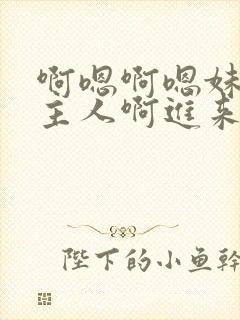 啊嗯啊嗯妹
主人啊進来
陛下的小鱼幹